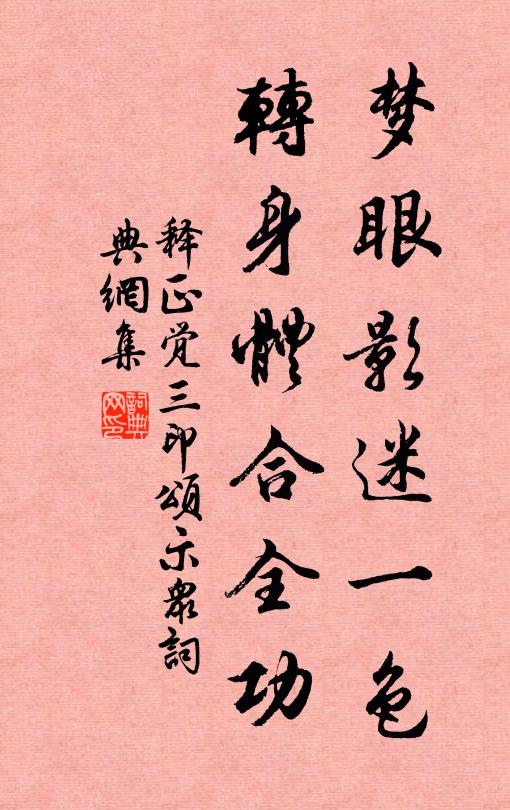 梦眼影迷一色
轉身體合全功
释正覚三印頌示衆詞
典網集
詞典
网印